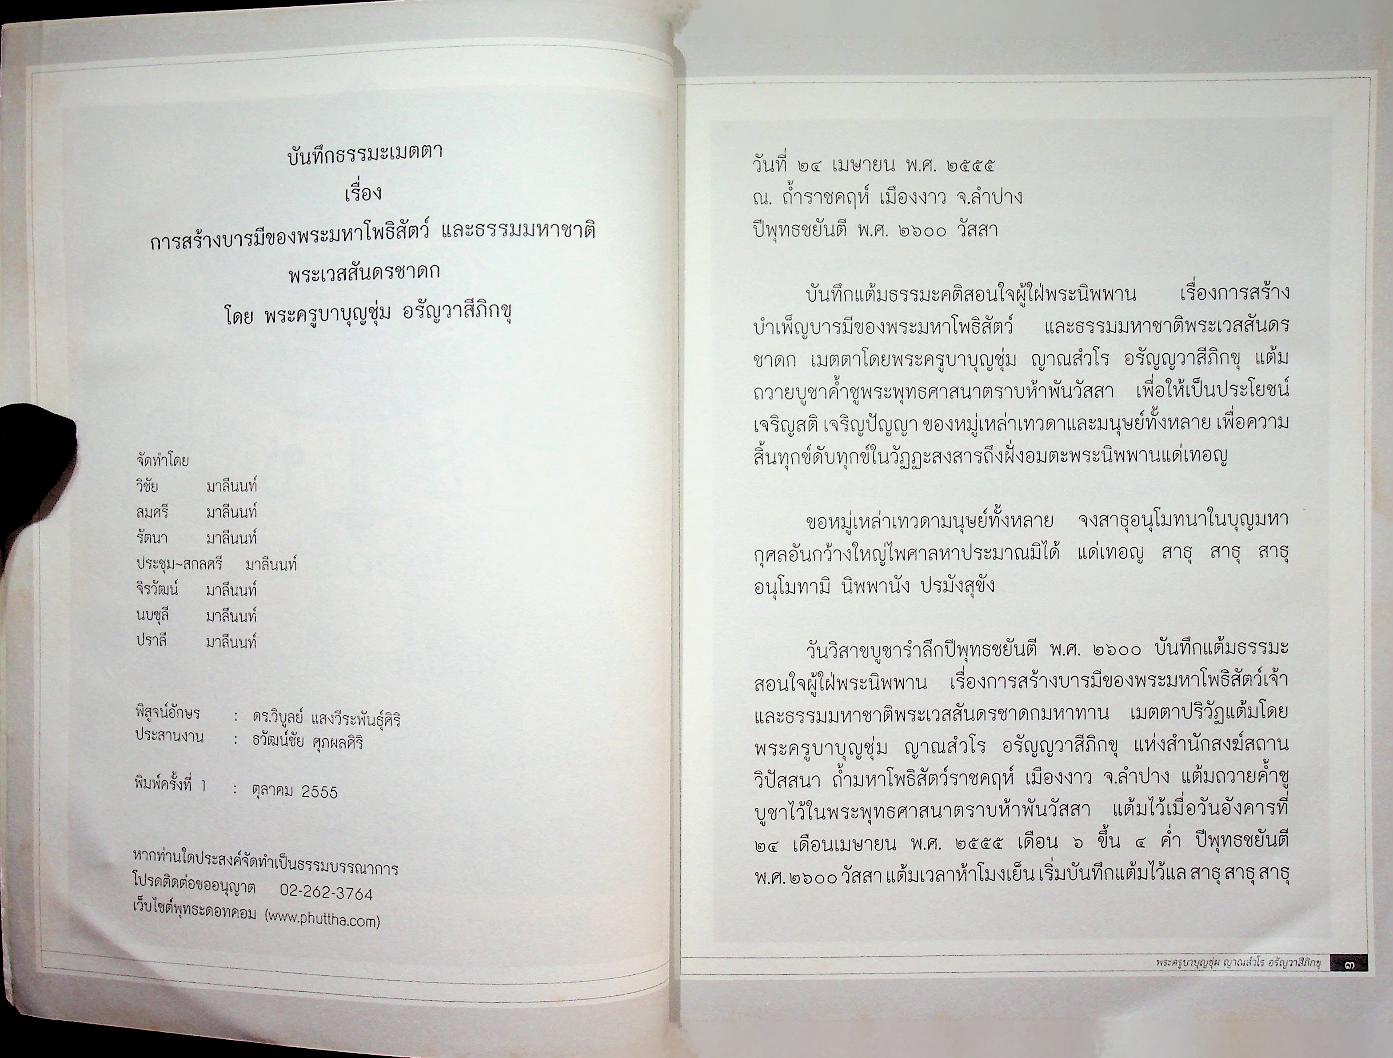 บันทึกธรรมะเมตตา
เรื่อง
การสร้างบารมีของพระมหาโพธิสัตว์ และธรรมมหาชาติ
พระเวสสันดรชาดก
โดย พระครูบาบุญชุ่ม อรัญวาสีภิกขุ
จัดทำโดย
วิชัย มาลีนนท์
สมศรี มาลีนนท์
รัตนา มาลีนนท์
ประชุม~สกลศรี มาลีนนท์
จิรวัฒน์ มาลีนนท์
นบชุลี มาลีนนท์
ปราลี มาลีนนท์
พิสูจน์อักษร : ดร.วิบูลย์ แสงวีระพันธุ์ศิริ
ประสานงาน : ธวัฒน์ชัย ศุภผลศิริ
พิมพ์ครั้งที่ 1 : ตุลาคม 2555
หากท่านใดประสงค์จัดทำเป็นธรรมบรรณาการ
โปรดติดต่อขออนุญาต 02-262-3764
เว็บไซต์พุทธะดอทคอม (www.phuttha.com)
วันที่ ๒๔ เมษายน พ.ศ. ๒๕๕๕
ณ. ถ้ำราชคฤห์ เมืองงาว จ.ลำปาง
ปีพุทธชยันตี พ.ศ. ๒๖๐๐ วัสสา
บันทึกแต้มธรรมะคติสอนใจผู้ใฝ่พระนิพพาน เรื่องการสร้าง
บำเพ็ญบารมีของพระมหาโพธิสัตว์ และธรรมมหาชาติพระเวสสันดร
ชาดก เมตตาโดยพระครูบาบุญชุ่ม ญาณสํวโร อรัญญวาสีภิกขุ แต้ม
ถวายบูชาค้ำชูพระพุทธศาสนาตราบห้าพันวัสสา เพื่อให้เป็นประโยชน์
เจริญสติ เจริญปัญญา ของหมู่เหล่าเทวดาและมนุษย์ทั้งหลาย เพื่อความ
สิ้นทุกข์ดับทุกข์ในวัฏฏะสงสารถึงฝั่งอมตะพระนิพพานแด่เทอญ
ขอหมู่เหล่าเทวดามนุษย์ทั้งหลาย จงสาธุอนุโมทนาในบุญมหา
กุศลอันกว้างใหญ่ไพศาลหาประมาณมิได้ แด่เทอญ สาธุ สาธุ สาธุ
อนุโมทามิ นิพพานัง ปรมังสุขัง
วันวิสาขบูชารำลึกปีพุทธชยันตี พ.ศ. ๒๖๐๐ บันทึกแต้มธรรมะ
สอนใจผู้ใฝ่พระนิพพาน เรื่องการสร้างบารมีของพระมหาโพธิสัตว์เจ้า
และธรรมมหาชาติพระเวสสันดรชาดกมหาทาน เมตตาปริวัฏแต้มโดย
พระครูบาบุญชุ่ม ญาณสํวโร อรัญญวาสีภิกขุ แห่งสำนักสงฆ์สถาน
วิปัสสนา ถ้ำมหาโพธิสัตว์ราชคฤห์ เมืองงาว จ.ลำปาง แต้มถวายค้ำชู
บูชาไว้ในพระพุทธศาสนาตราบห้าพันวัสสา แต้มไว้เมื่อวันอังคารที่
๒๔ เดือนเมษายน พ.ศ. ๒๕๕๕ เดือน ๖ ขึ้น ๔ ค่ำ ปีพุทธชยันตี
พ.ศ.๒๖๐๐ วัสสา แต้มเวลาห้าโมงเย็น เริ่มบันทึกแต้มไว้แล สาธุ สาธุ สาธุ
พระครูบาบุญชุ่ม ญาณสํวโร อรัญวาสีภิกขุ ๓